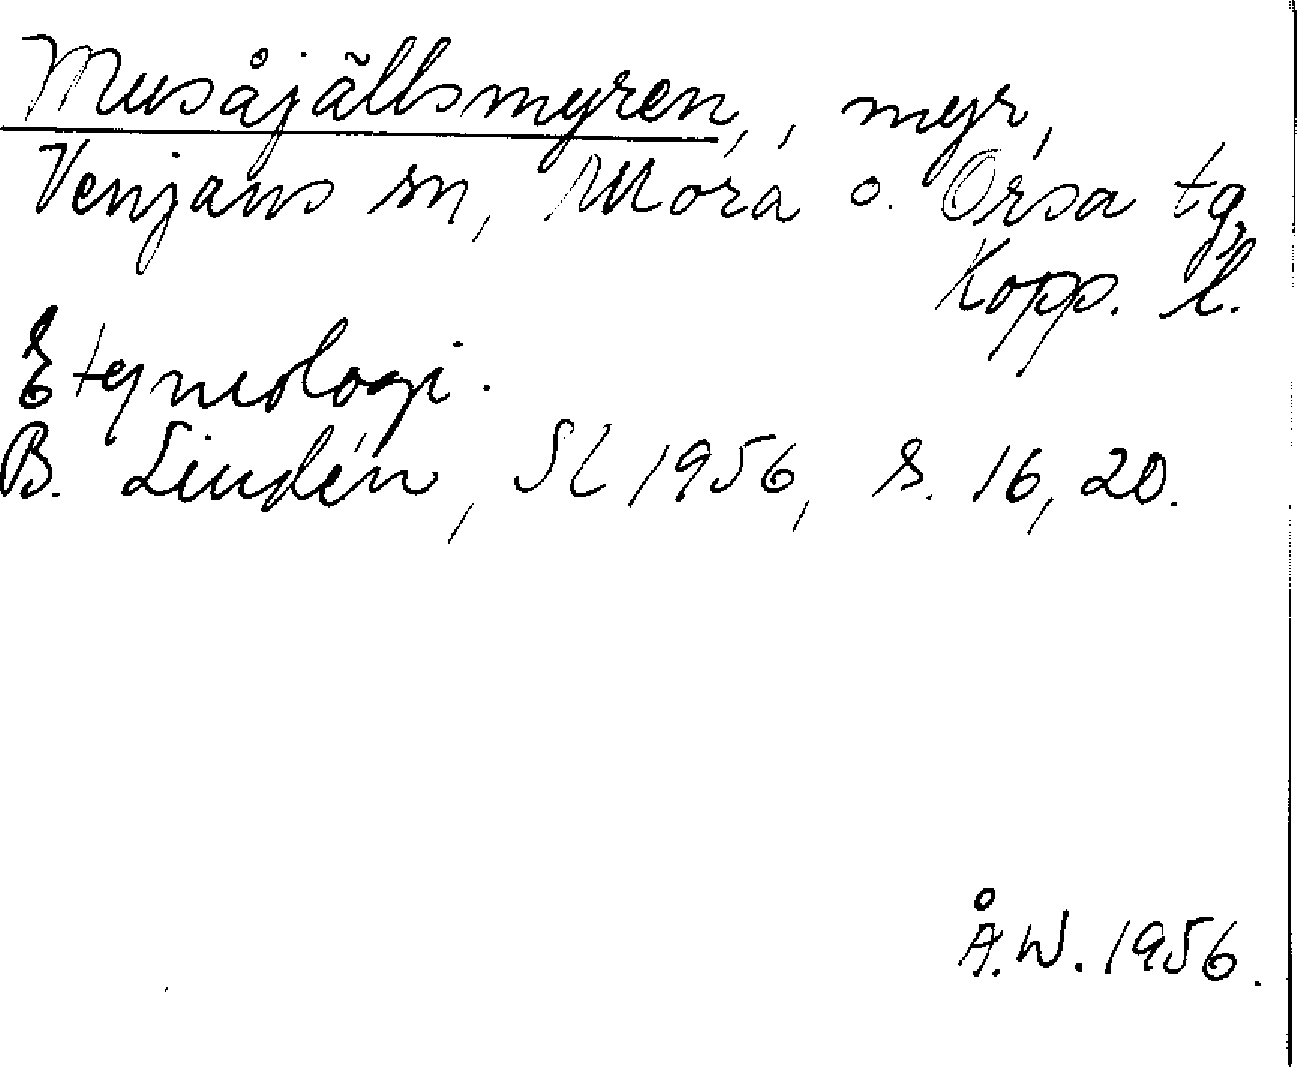 Musåjällsmyren, myr,
Venjans sn, Mora o. Orsa tg,
Kopp. l.
Etymologi.
B. Lindén, SL 1956, s. 16, 20.
Å.W. 1956.